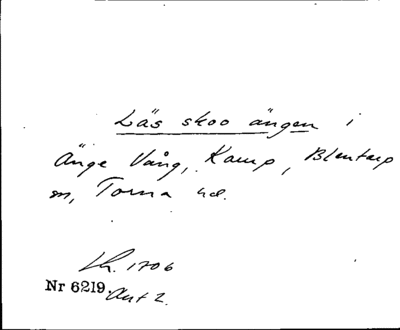 Läs skoo ängen i
Änge Vång, Kamp, Blentarp
sn, Torna hd.
Lh. 1706
Nr 6219. Akt 2.